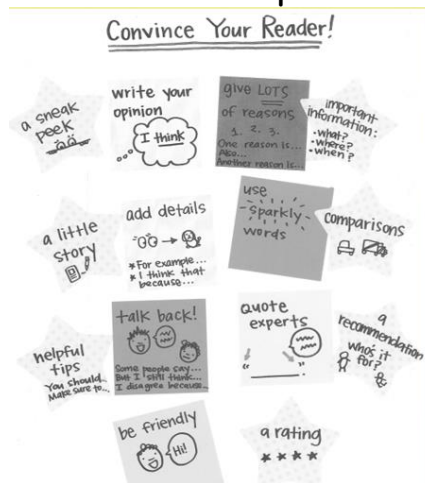 Convince Your Reader!
a sneak
peek
write your
opinion
I think
give LOTS
of reasons
1. 2. 3.
One reason is...
Also...
Another reason is...
important
information:
• what?
• where?
• when?
a little
story
add details
* For example...
* I think that
because...
use
sparkly
words
comparisons
helpful
tips
You should...
Make sure to...
talk back!
Some people say...
But I still think...
I disagree because...
quote
experts
" "
a
recommendation
who's it
for?
be friendly
Hi!
a rating
★ ★ ★ ★